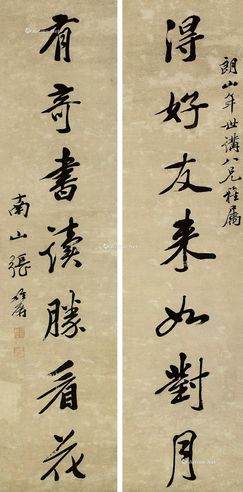 朗山年世講八兄雅屬
得好友来如對月
有奇書讀勝看花
南山張維屏